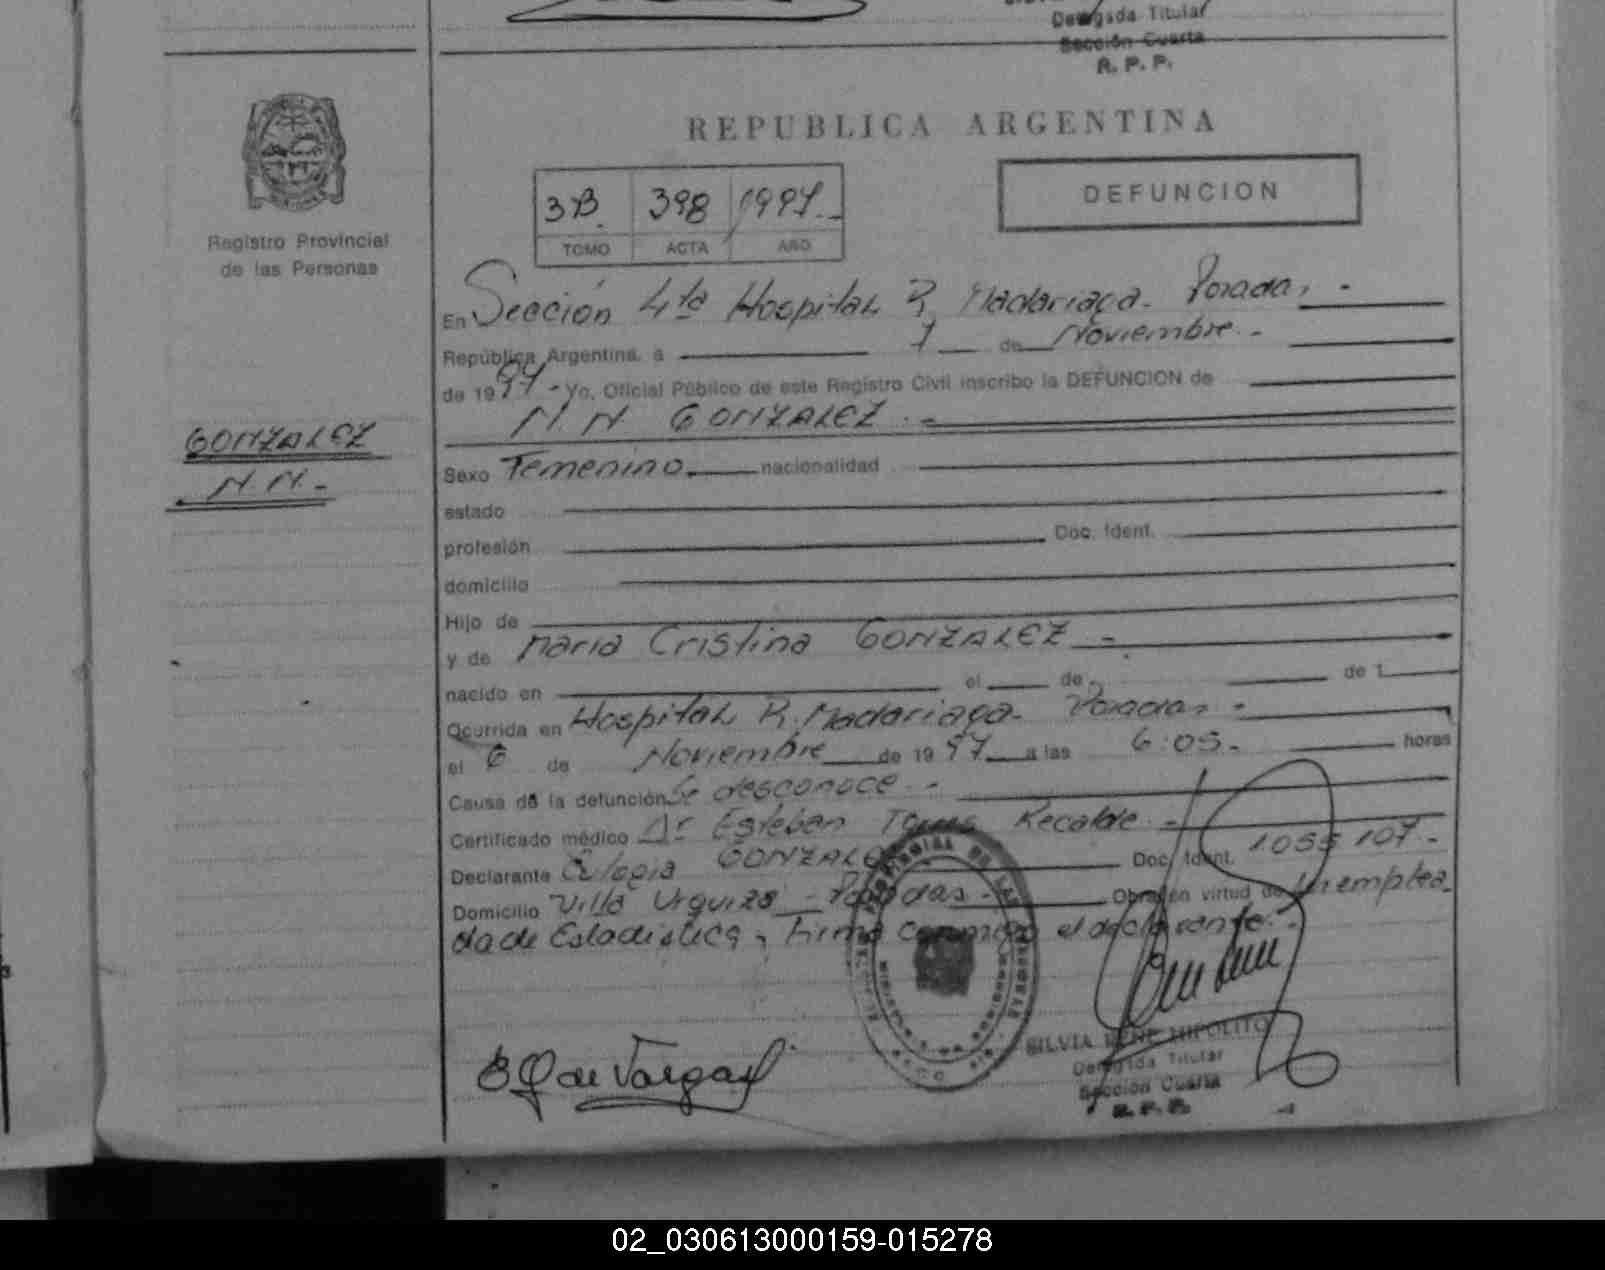 Delegada Titular
Sección Cuarta
R. P. P.
REPUBLICA ARGENTINA
3B. 398 1997.-
TOMO ACTA AÑO
DEFUNCION
Registro Provincial
de las Personas
En Sección 4ta Hospital R. Madariaga. Posadas, -
República Argentina, a 7 de Noviembre. -
de 1997 - Yo, Oficial Público de este Registro Civil inscribo la DEFUNCION de
N. N GONZALEZ. -
GONZALEZ
N.N. -
Sexo Femenino. nacionalidad
estado
profesión Doc. Ident.
domicilio
Hijo de
y de Maria Cristina GONZALEZ -
nacido en el de de 1
Ocurrida en Hospital R. Madariaga. Posadas. -
el 6 de Noviembre de 1997 a las 6:05. - horas
Causa de la defunción Se desconoce. -
Certificado médico Dr Esteban Recalde. -
Declarante Eulogia GONZALEZ Doc. Ident. 1055107 -
Domicilio Villa Urquiza - Posadas - Obra en virtud de Un emplea
da de Estadistica, Firma conmigo el declarante. -
E G de Vargas
SILVIA IRENE HIPOLITO
Delegada Titular
Sección Cuarta
R. P. P.
02_030613000159-015278